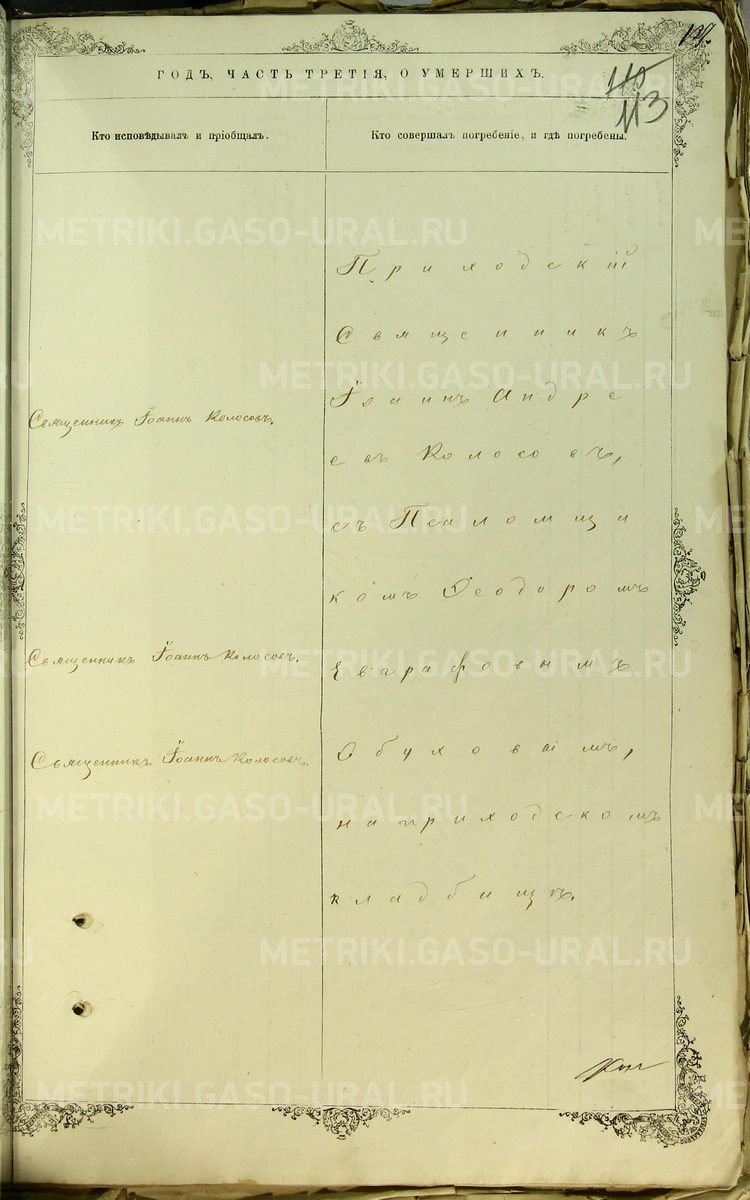 ГОДЪ, ЧАСТЬ ТРЕТІЯ, О УМЕРШИХЪ.
113
Кто исповѣдывалъ и пріобщалъ.
Кто совершалъ погребеніе, и гдѣ погребены.
Священникъ Іоаннъ Колосовъ.
Священникъ Іоаннъ Колосовъ.
Священникъ Іоаннъ Колосовъ.
Приходскій
Священникъ
Іоаннъ Андре
евъ Колосовъ,
съ Псаломщи
комъ Ѳеодоромъ
Евграфовымъ
Обуховымъ,
на приходскомъ
кладбищѣ.
METRIKI.GASO-URAL.RU